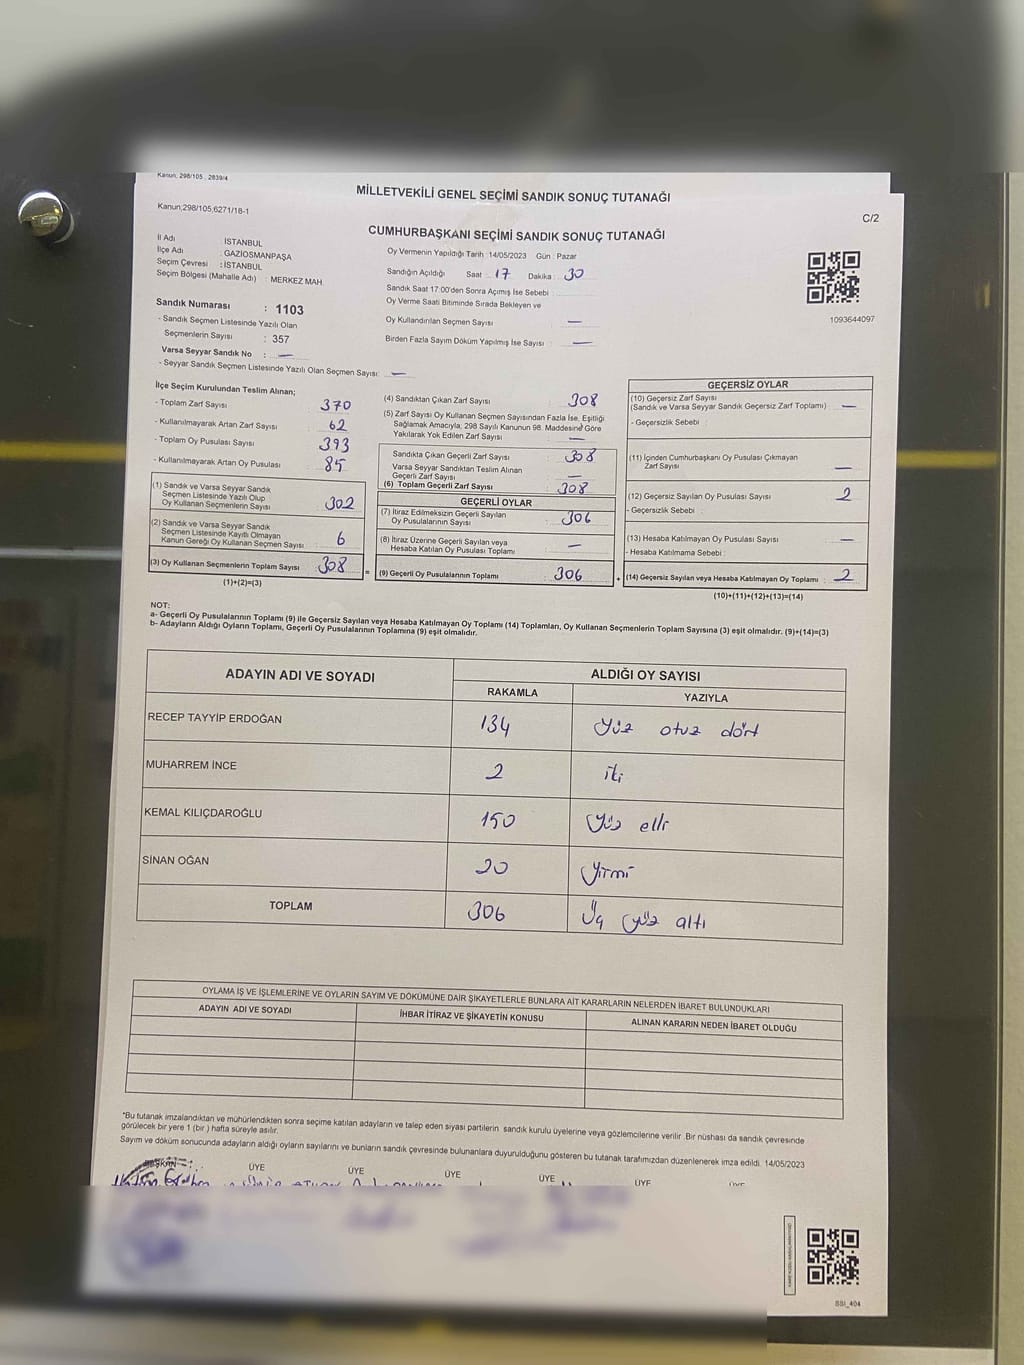 Kanun; 298/105 , 2839/4
MİLLETVEKİLİ GENEL SEÇİMİ SANDIK SONUÇ TUTANAĞI
Kanun;298/105,6271/18-1
C/2
CUMHURBAŞKANI SEÇİMİ SANDIK SONUÇ TUTANAĞI
İl Adı İSTANBUL
İlçe Adı : GAZİOSMANPAŞA
Seçim Çevresi : İSTANBUL
Seçim Bölgesi (Mahalle Adı) : MERKEZ MAH.
Sandık Numarası : 1103
- Sandık Seçmen Listesinde Yazılı Olan
Seçmenlerin Sayısı : 357
Varsa Seyyar Sandık No : —
- Seyyar Sandık Seçmen Listesinde Yazılı Olan Seçmen Sayısı: —
Oy Vermenin Yapıldığı Tarih :14/05/2023 Gün : Pazar
Sandığın Açıldığı Saat : 17 Dakika : 30
Sandık Saat 17:00'den Sonra Açımış İse Sebebi :
Oy Verme Saati Bitiminde Sırada Bekleyen ve
Oy Kullandırılan Seçmen Sayısı —
Birden Fazla Sayım Döküm Yapılmış İse Sayısı : —
1093644097
İlçe Seçim Kurulundan Teslim Alınan;
- Toplam Zarf Sayısı 370
- Kullanılmayarak Artan Zarf Sayısı : 62
- Toplam Oy Pusulası Sayısı 393
- Kullanılmayarak Artan Oy Pusulası 85
(1) Sandık ve Varsa Seyyar Sandık
Seçmen Listesinde Yazılı Olup
Oy Kullanan Seçmenlerin Sayısı 302
(2) Sandık ve Varsa Seyyar Sandık
Seçmen Listesinde Kayıtlı Olmayan
Kanun Gereği Oy Kullanan Seçmen Sayısı 6
(3) Oy Kullanan Seçmenlerin Toplam Sayısı 308
(1)+(2)=(3)
(4) Sandıktan Çıkan Zarf Sayısı : 308
(5) Zarf Sayısı Oy Kullanan Seçmen Sayısından Fazla İse, Eşitliği
Sağlamak Amacıyla, 298 Sayılı Kanunun 98. Maddesine Göre
Yakılarak Yok Edilen Zarf Sayısı : —
Sandıkta Çıkan Geçerli Zarf Sayısı : 308
Varsa Seyyar Sandıktan Teslim Alınan
Geçerli Zarf Sayısı : —
(6) Toplam Geçerli Zarf Sayısı : 308
GEÇERLİ OYLAR
(7) İtiraz Edilmeksizin Geçerli Sayılan
Oy Pusulalarının Sayısı : 306
(8) İtiraz Üzerine Geçerli Sayılan veya
Hesaba Katılan Oy Pusulası Toplamı : —
= (9) Geçerli Oy Pusulalarının Toplamı : 306
GEÇERSİZ OYLAR
(10) Geçersiz Zarf Sayısı
(Sandık ve Varsa Seyyar Sandık Geçersiz Zarf Toplamı) : —
- Geçersizlik Sebebi :
(11) İçinden Cumhurbaşkanı Oy Pusulası Çıkmayan
Zarf Sayısı : —
(12) Geçersiz Sayılan Oy Pusulası Sayısı : 2
- Geçersizlik Sebebi :
(13) Hesaba Katılmayan Oy Pusulası Sayısı : —
- Hesaba Katılmama Sebebi :
+ (14) Geçersiz Sayılan veya Hesaba Katılmayan Oy Toplamı : 2
(10)+(11)+(12)+(13)=(14)
NOT:
a- Geçerli Oy Pusulalarının Toplamı (9) ile Geçersiz Sayılan veya Hesaba Katılmayan Oy Toplamı (14) Toplamları, Oy Kullanan Seçmenlerin Toplam Sayısına (3) eşit olmalıdır. (9)+(14)=(3)
b- Adayların Aldığı Oyların Toplamı, Geçerli Oy Pusulalarının Toplamına (9) eşit olmalıdır.
ADAYIN ADI VE SOYADI ALDIĞI OY SAYISI
RAKAMLA YAZIYLA
RECEP TAYYİP ERDOĞAN 134 Yüz otuz dört
MUHARREM İNCE 2 iki
KEMAL KILIÇDAROĞLU 150 Yüz elli
SİNAN OĞAN 20 Yirmi
TOPLAM 306 Üç yüz altı
OYLAMA İŞ VE İŞLEMLERİNE VE OYLARIN SAYIM VE DÖKÜMÜNE DAİR ŞİKAYETLERLE BUNLARA AİT KARARLARIN NELERDEN İBARET BULUNDUKLARI
ADAYIN ADI VE SOYADI İHBAR İTİRAZ VE ŞİKAYETİN KONUSU ALINAN KARARIN NEDEN İBARET OLDUĞU
*Bu tutanak imzalandıktan ve mühürlendikten sonra seçime katılan adayların ve talep eden siyasi partilerin sandık kurulu üyelerine veya gözlemcilerine verilir .Bir nüshası da sandık çevresinde
görülecek bir yere 1 (bir ) hafta süreyle asılır.
Sayım ve döküm sonucunda adayların aldığı oyların sayılarını ve bunların sandık çevresinde bulunanlara duyurulduğunu gösteren bu tutanak tarafımızdan düzenlenerek imza edildi. 14/05/2023
BAŞKAN ÜYE ÜYE ÜYE ÜYE ÜYE
BBI_404